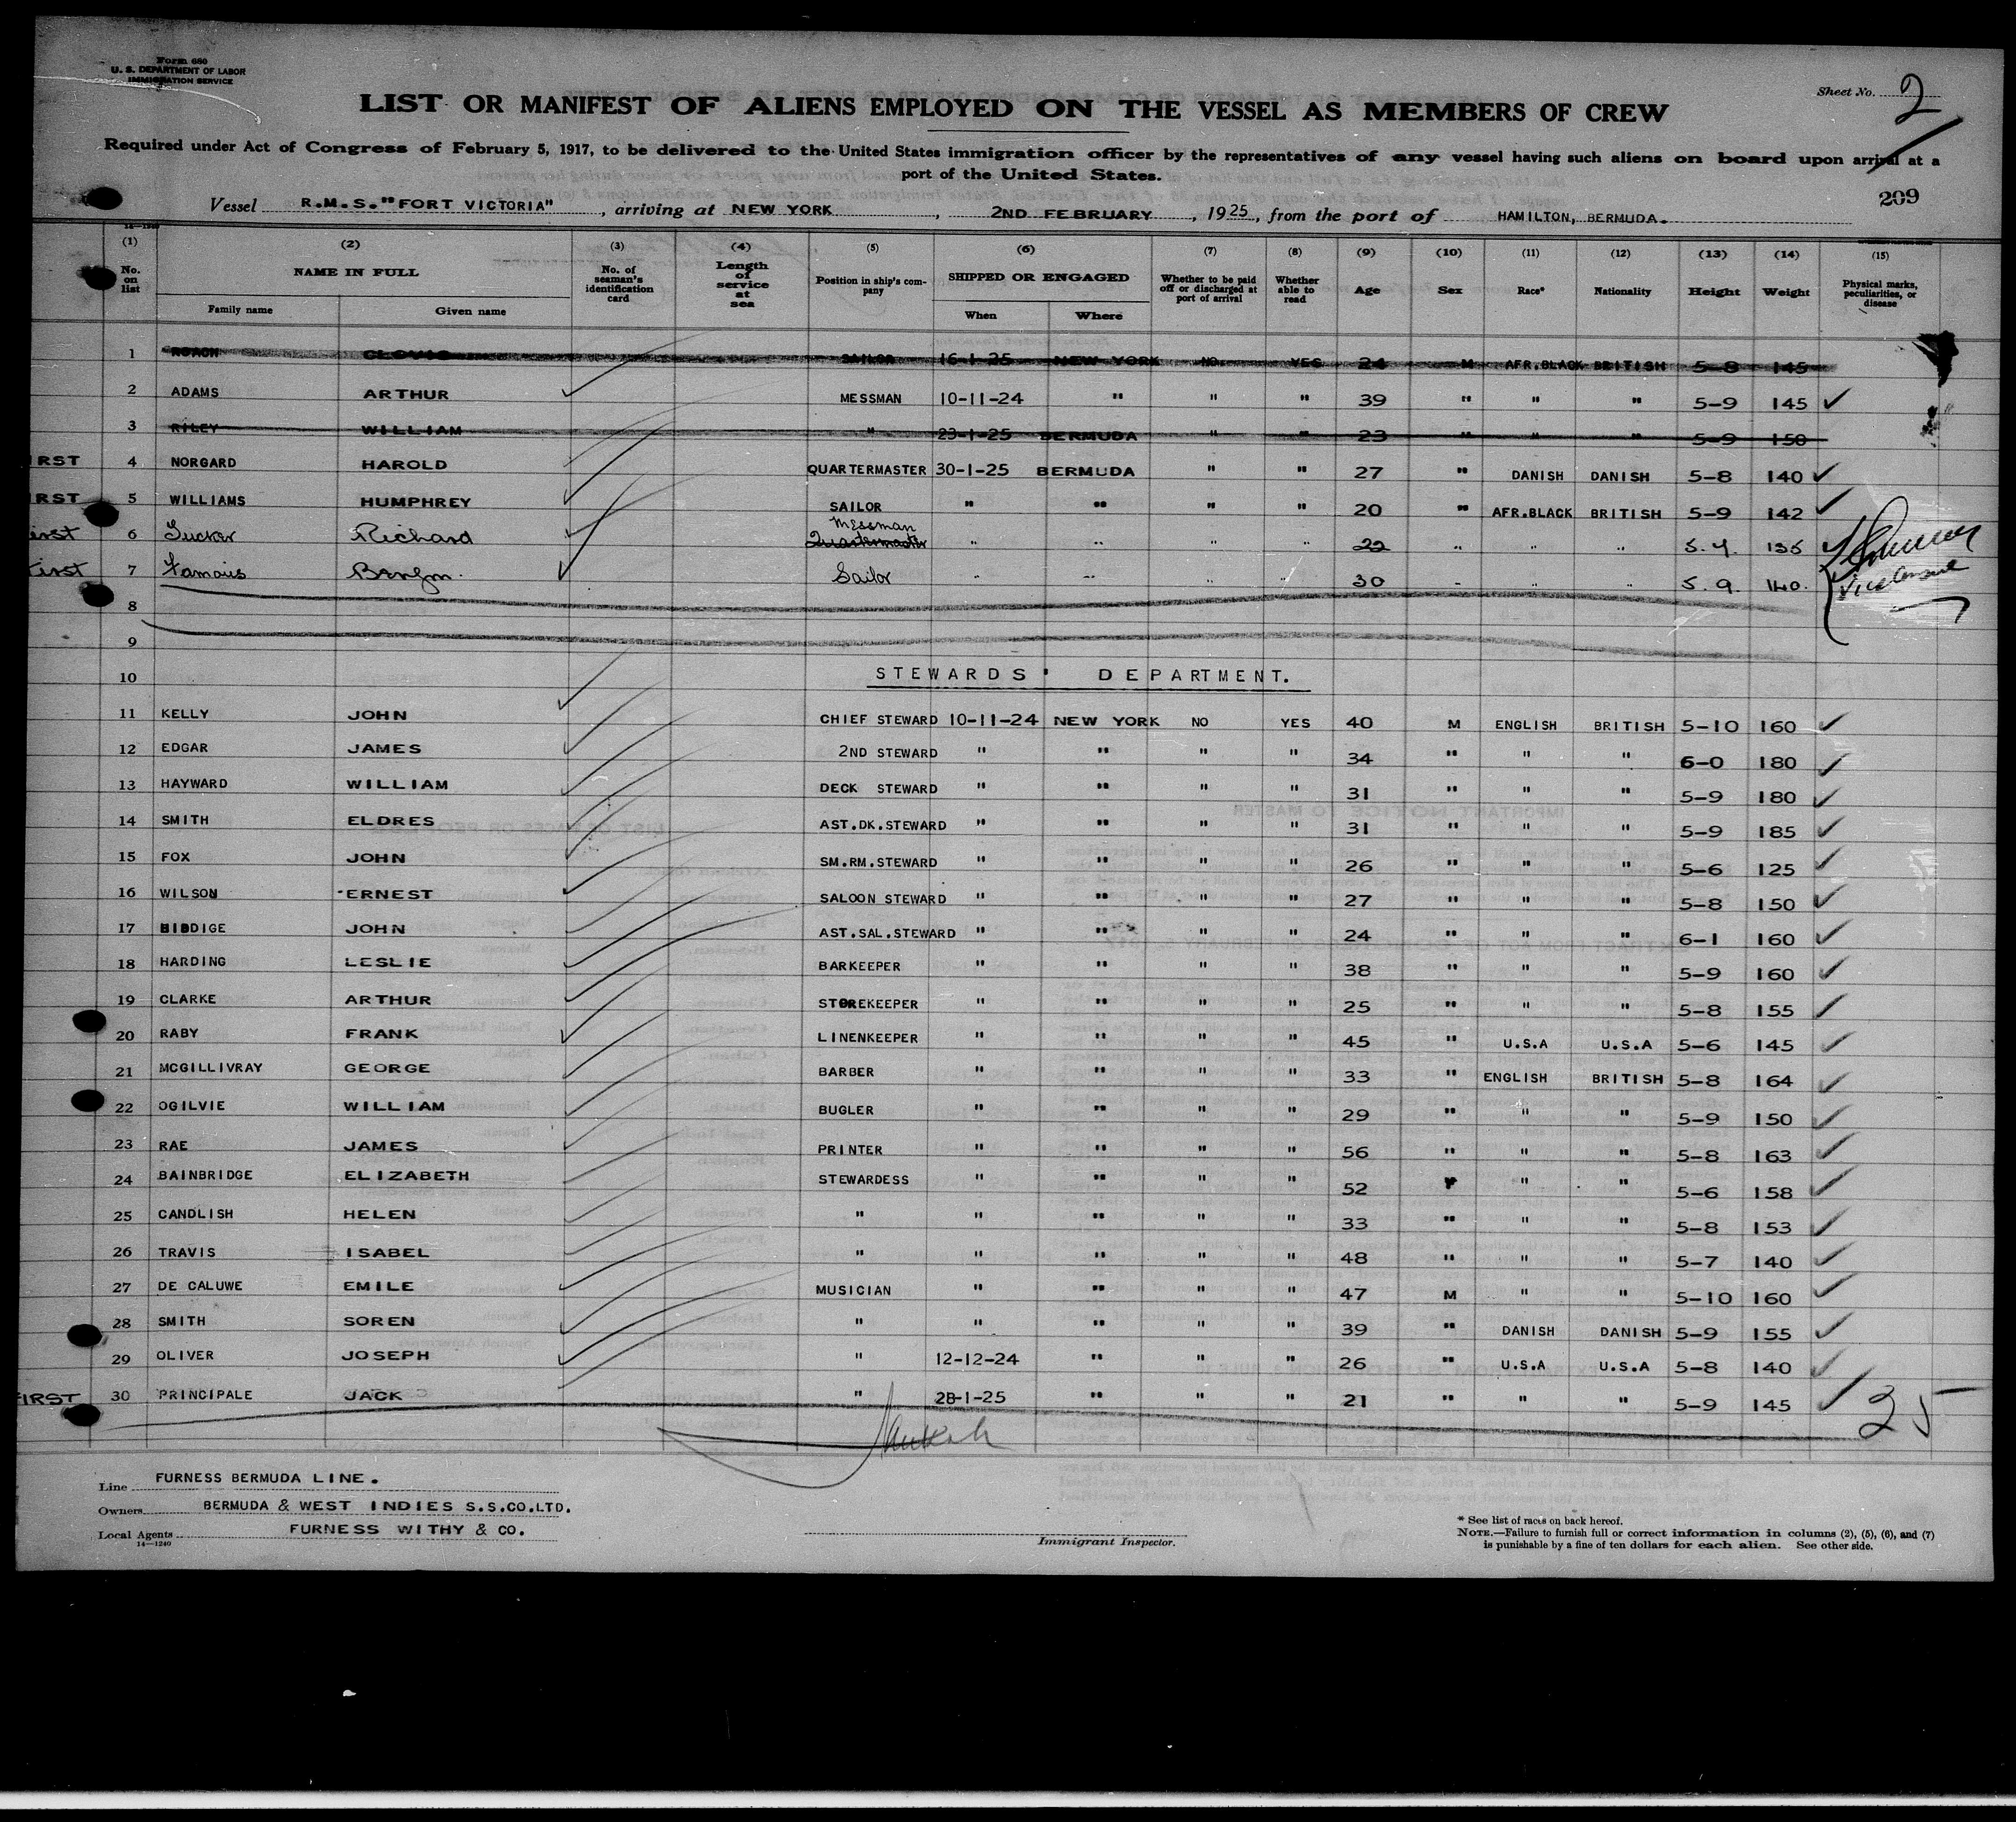 Form 680
U. S. DEPARTMENT OF LABOR
IMMIGRATION SERVICE
Sheet No. 2
LIST OR MANIFEST OF ALIENS EMPLOYED ON THE VESSEL AS MEMBERS OF CREW
Required under Act of Congress of February 5, 1917, to be delivered to the United States immigration officer by the representatives of any vessel having such aliens on board upon arrival at a
port of the United States.
209
Vessel R.M.S. "FORT VICTORIA", arriving at NEW YORK, 2ND FEBRUARY, 1925, from the port of HAMILTON, BERMUDA.
14—1240
(1) (2) (3) (4) (5) (6) (7) (8) (9) (10) (11) (12) (13) (14) (15)
No. on list NAME IN FULL No. of seaman's identification card Length of service at sea Position in ship's company SHIPPED OR ENGAGED Whether to be paid off or discharged at port of arrival Whether able to read Age Sex Race* Nationality Height Weight Physical marks, peculiarities, or disease
Family name Given name When Where
1 ROACH CLOVIS SAILOR 16-1-25 NEW YORK NO YES 24 M AFR.BLACK BRITISH 5-8 145
2 ADAMS ARTHUR MESSMAN 10-11-24 " " " 39 " " " 5-9 145
3 RILEY WILLIAM " 23-1-25 BERMUDA " " 23 " " " 5-9 150
IRST 4 NORGARD HAROLD QUARTERMASTER 30-1-25 BERMUDA " " 27 " DANISH DANISH 5-8 140
IRST 5 WILLIAMS HUMPHREY SAILOR " " " " 20 " AFR.BLACK BRITISH 5-9 142
Messman
irst 6 Tucker Richard Quartermaster " " " " 22 " " " 5.7. 135
First 7 Famous Sailor " " " " 30 " " " 5.9. 140.
8
9
10 STEWARDS' DEPARTMENT.
11 KELLY JOHN CHIEF STEWARD 10-11-24 NEW YORK NO YES 40 M ENGLISH BRITISH 5-10 160
12 EDGAR JAMES 2ND STEWARD " " " " 34 " " " 6-0 180
13 HAYWARD WILLIAM DECK STEWARD " " " " 31 " " " 5-9 180
14 SMITH ELDRES AST.DK.STEWARD " " " " 31 " " " 5-9 185
15 FOX JOHN SM.RM.STEWARD " " " " 26 " " " 5-6 125
16 WILSON ERNEST SALOON STEWARD " " " " 27 " " " 5-8 150
17 BIDDIGE JOHN AST.SAL.STEWARD " " " " 24 " " " 6-1 160
18 HARDING LESLIE BARKEEPER " " " " 38 " " " 5-9 160
19 CLARKE ARTHUR STOREKEEPER " " " " 25 " " " 5-8 155
20 RABY FRANK LINENKEEPER " " " " 45 " U.S.A U.S.A 5-6 145
21 MCGILLIVRAY GEORGE BARBER " " " " 33 " ENGLISH BRITISH 5-8 164
22 OGILVIE WILLIAM BUGLER " " " " 29 " " " 5-9 150
23 RAE JAMES PRINTER " " " " 56 " " " 5-8 163
24 BAINBRIDGE ELIZABETH STEWARDESS " " " " 52 F " " 5-6 158
25 CANDLISH HELEN " " " " " 33 " " " 5-8 153
26 TRAVIS ISABEL " " " " " 48 " " " 5-7 140
27 DE CALUWE EMILE MUSICIAN " " " " 47 M " " 5-10 160
28 SMITH SOREN " " " " " 39 " DANISH DANISH 5-9 155
29 OLIVER JOSEPH " 12-12-24 " " " 26 " U.S.A U.S.A 5-8 140
FIRST 30 PRINCIPALE JACK " 28-1-25 " " " 21 " " " 5-9 145
25
Line FURNESS BERMUDA LINE.
Owners BERMUDA & WEST INDIES S.S.CO.LTD.
Local Agents FURNESS WITHY & CO.
14—1240
Immigrant Inspector.
* See list of races on back hereof.
NOTE.—Failure to furnish full or correct information in columns (2), (5), (6), and (7)
is punishable by a fine of ten dollars for each alien. See other side.